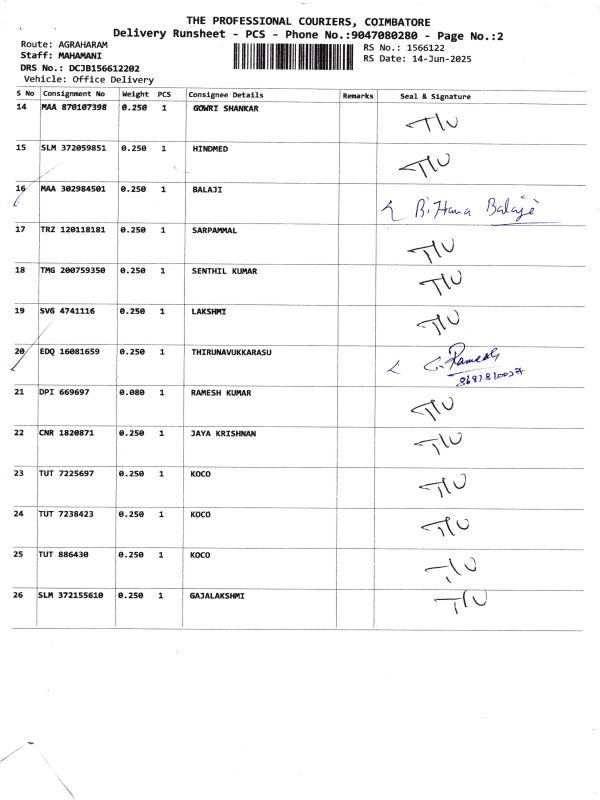 THE PROFESSIONAL COURIERS, COIMBATORE
Delivery Runsheet - PCS - Phone No.:9047080280 - Page No.:2
Route: AGRAHARAM
Staff: MAHAMANI
DRS No.: DCJB156612202
Vehicle: Office Delivery
RS No.: 1566122
RS Date: 14-Jun-2025
S No Consignment No Weight PCS Consignee Details Remarks Seal & Signature
14 MAA 870107398 0.250 1 GOWRI SHANKAR T/U
15 SLM 372059851 0.250 1 HINDMED T/U
16 MAA 302984501 0.250 1 BALAJI Balaji
17 TRZ 120118181 0.250 1 SARPAMMAL T/U
18 TMG 200759350 0.250 1 SENTHIL KUMAR T/U
19 SVG 4741116 0.250 1 LAKSHMI T/U
20 EDQ 16081659 0.250 1 THIRUNAVUKKARASU G. Ramesh
21 DPI 669697 0.080 1 RAMESH KUMAR T/U
22 CNR 1820871 0.250 1 JAYA KRISHNAN T/U
23 TUT 7225697 0.250 1 KOCO T/U
24 TUT 7238423 0.250 1 KOCO T/U
25 TUT 886430 0.250 1 KOCO T/U
26 SLM 372155610 0.250 1 GAJALAKSHMI T/U